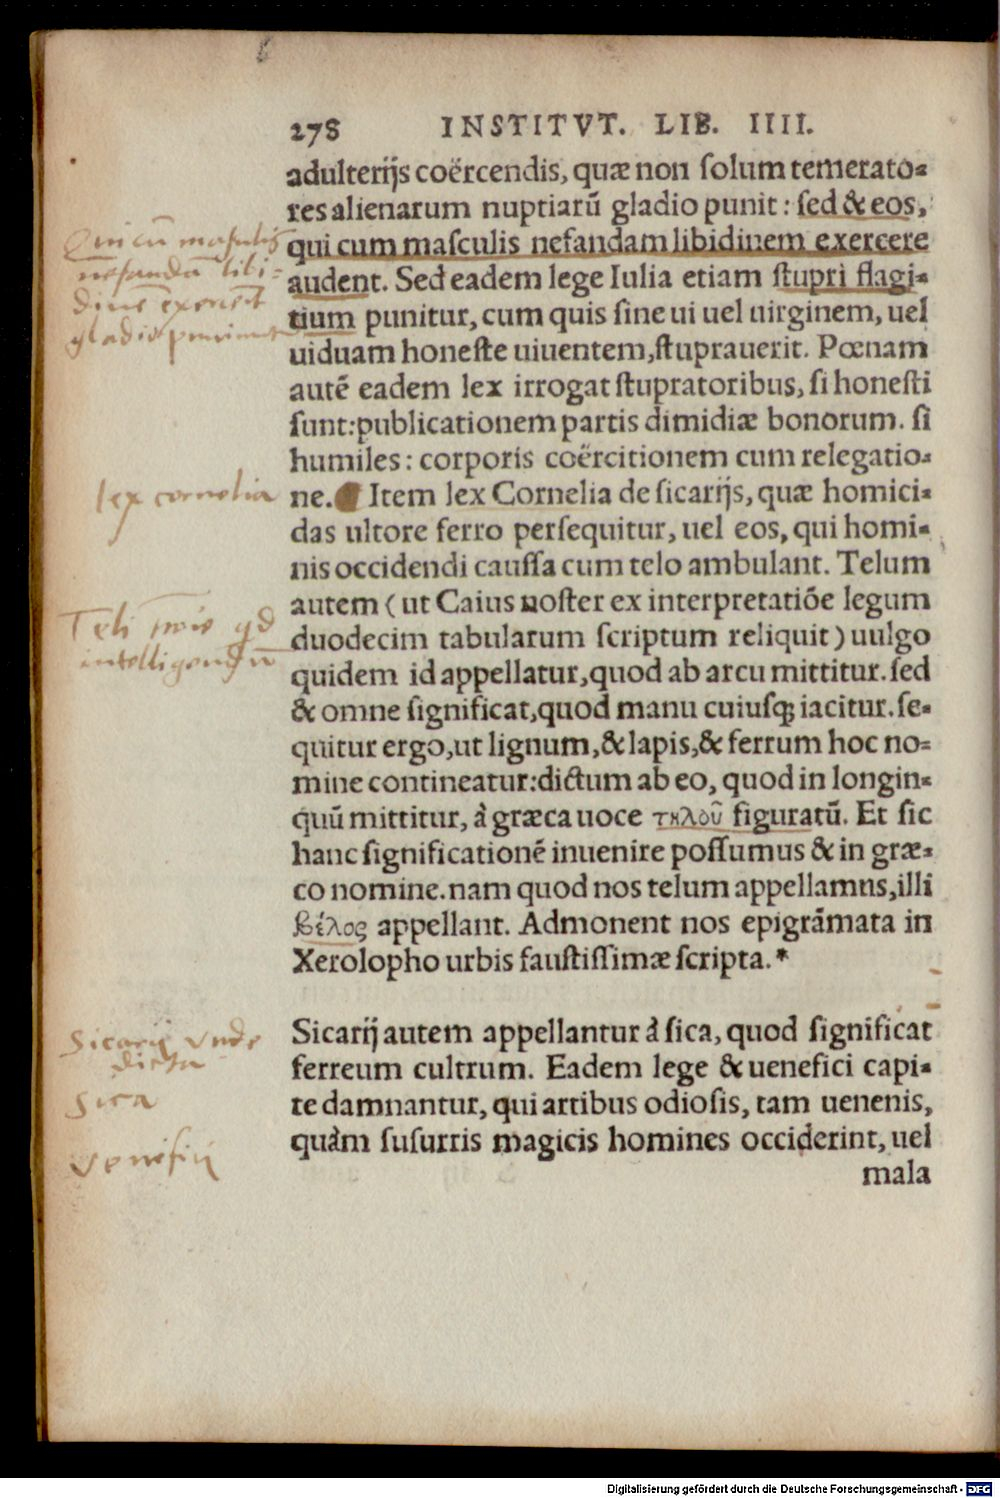 6
278 INSTITVT. LIB. IIII.
adulterijs coërcendis, quæ non ſolum temerato-
res alienarum nuptiarū gladio punit: ſed & eos,
qui cum maſculis nefandam libidinem exercere
audent. Sed eadem lege Iulia etiam ſtupri flagi-
tium punitur, cum quis ſine ui uel uirginem, uel
uiduam honeſte uiuentem, ſtuprauerit. Pœnam
autē eadem lex irrogat ſtupratoribus, ſi honeſti
ſunt: publicationem partis dimidiæ bonorum. ſi
humiles: corporis coërcitionem cum relegatio-
ne. Item lex Cornelia de ſicarijs, quæ homici-
das ultore ferro perſequitur, uel eos, qui homi-
nis occidendi cauſſa cum telo ambulant. Telum
autem (ut Caius noſter ex interpretatiōe legum
duodecim tabularum ſcriptum reliquit) uulgo
quidem id appellatur, quod ab arcu mittitur. ſed
& omne ſignificat, quod manu cuiuſq; iacitur. ſe-
quitur ergo, ut lignum, & lapis, & ferrum hoc no-
mine contineatur: dictum ab eo, quod in longin-
quū mittitur, à græca uoce τηλοῦ figuratū. Et ſic
hanc ſignificationē inuenire poſſumus & in græ-
co nomine. nam quod nos telum appellamus, illi
βέλος appellant. Admonent nos epigrāmata in
Xerolopho urbis fauſtiſſimæ ſcripta.*
Sicarij autem appellantur à ſica, quod ſignificat
ferreum cultrum. Eadem lege & uenefici capi-
te damnantur, qui artibus odioſis, tam uenenis,
quàm ſuſurris magicis homines occiderint, uel
mala
Qui cū masculis
nefandā libi-
dinē exercēt
gladio
lex cornelia
Teli qd
intelligendū
Sicarij vnde
dicta
Sica
Venefici
Digitalisierung gefördert durch die Deutsche Forschungsgemeinschaft - DFG